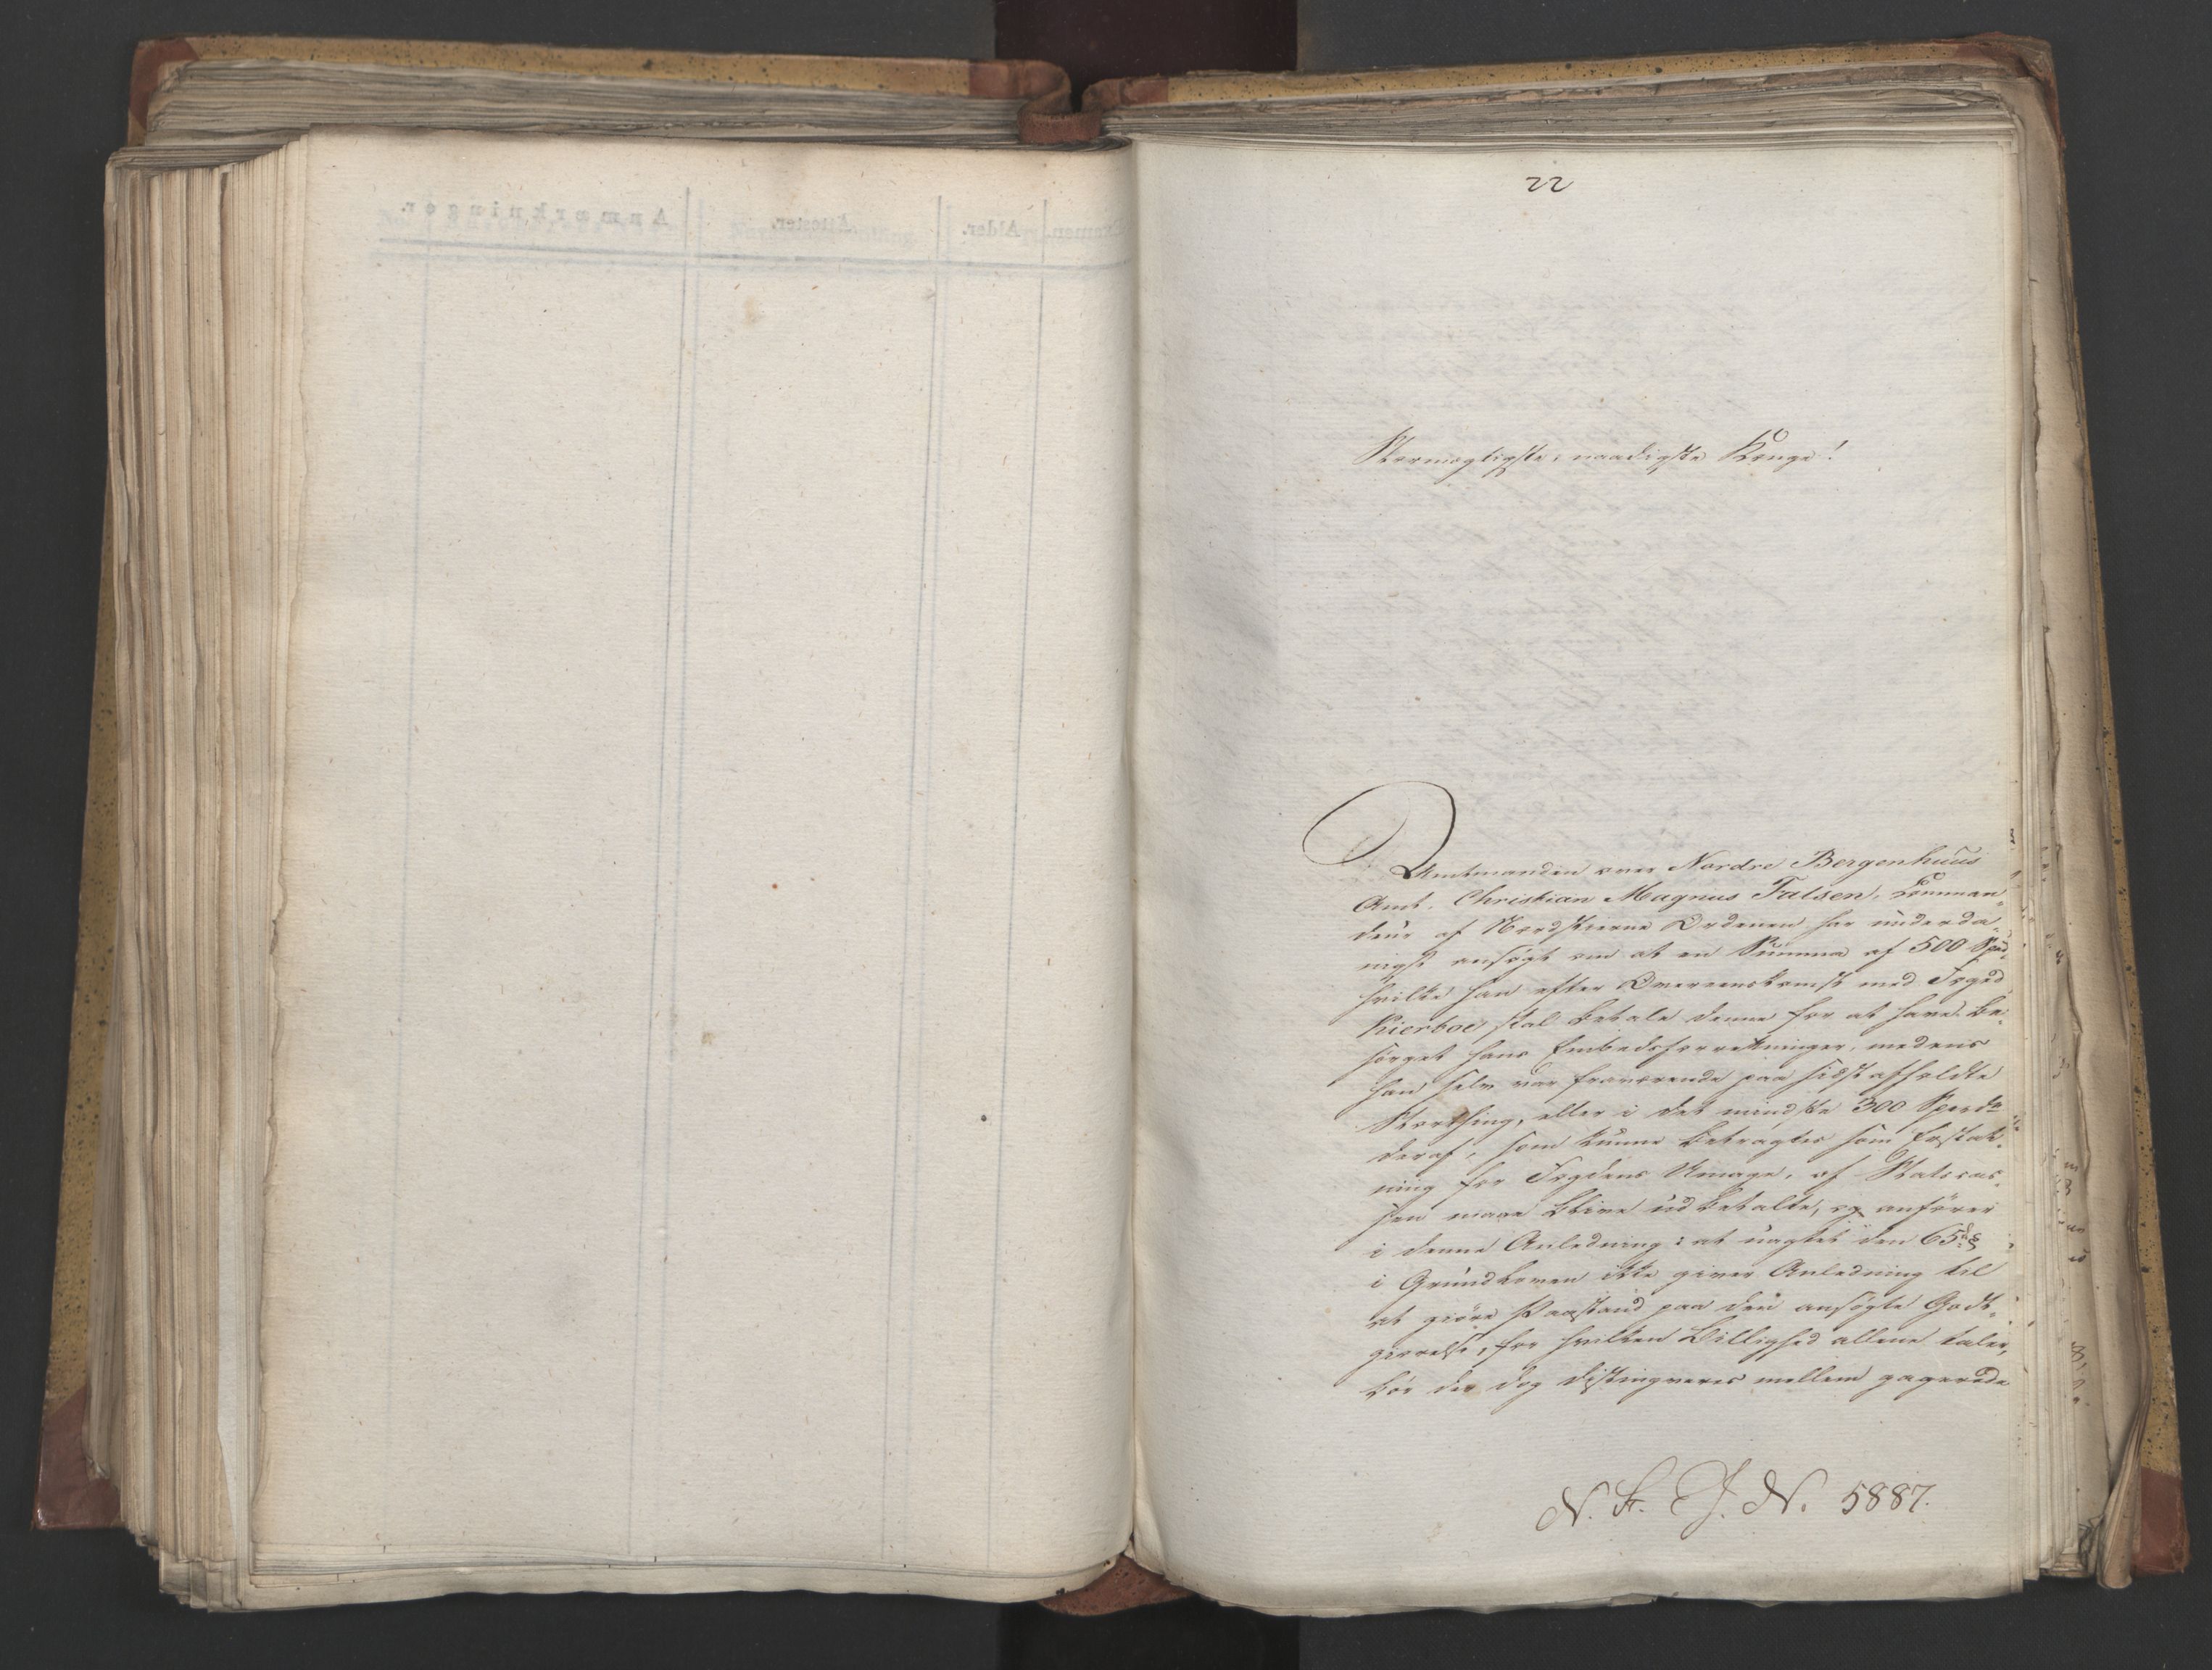 22
Stormægtigste, naadigste Konge!
Amtmanden over Nordre Bergenhuus
Amt, Christian Magnus Falsen, Comman-
deur af Nordstierne Ordenen har underda-
nigst ansøgt om at en Summa af 500 Spd,
hvilke han efter Overeenskomst med Foged
Kierboe skal betale denne for at have be-
sørget hans Embedsforretninger, medens
han selv var fraværende paa sidst afholdte
Storthing, eller i det mindste 300 Specdr
deraf, som kunne betragtes som Erstat-
ning for Fogdens Umage, af Statscas-
sen maae blive udbetalte, og anfører
i denne Anledning: at uagtet den 65de §
i Grundloven ikke giver Anledning til
at giöre Paastand paa den ansøgte Godt-
giørelse, for hvilken Billighed allene taler,
bör der dog distingveres mellem gagerede
N. F. J. N. 5887.
Anmærkninger.
Attester.
Alder.
Examen.